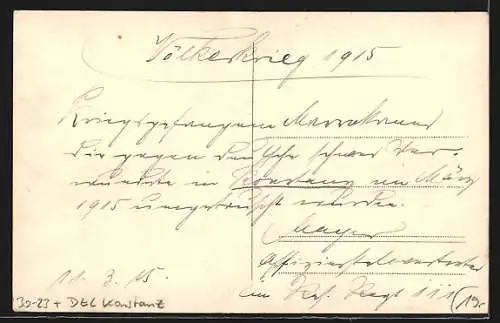 Völkerkrieg 1915
Kriegsgefangene Marrokaner
die gegen deutsche schwer Ver-
wundete in Konstanz im März
1915 umgetauscht wurden.
Mayer
Offizierstellvertreter
im Res. Regt 111
11. 3. 15.
39-23 + DEL Konstanz
19.-